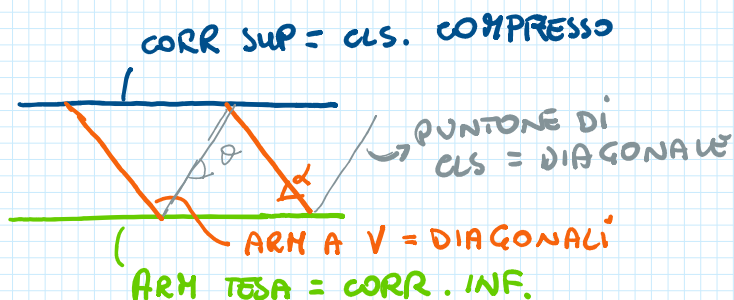 CORR SUP = CLS. COMPRESSO
θ
α
PUNTONE DI
CLS = DIAGONALE
ARM A V = DIAGONALI
ARM TESA = CORR. INF.